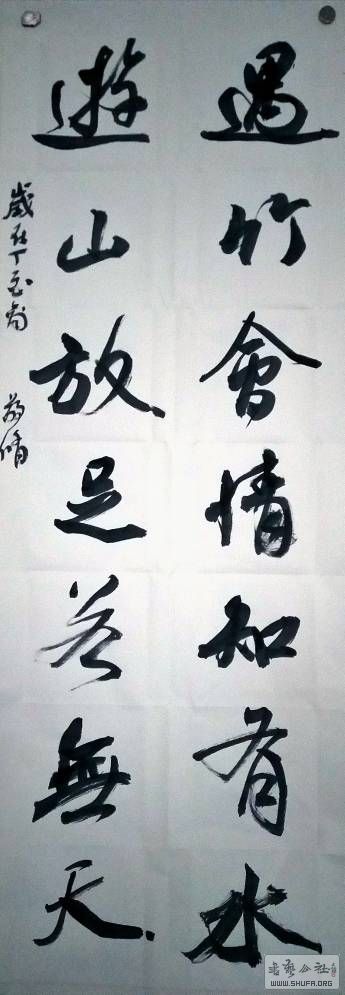 遇竹會情知有水
遊山放足若無天
歲在丁
书艺公社
WWW.SHUFA.ORG